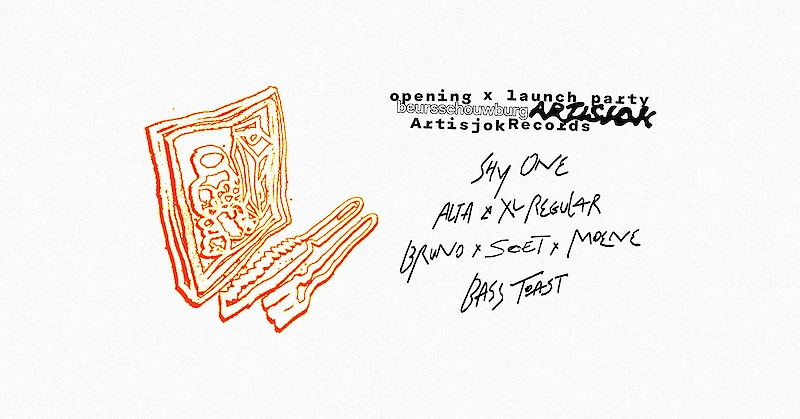 opening x launch party
beursschouwburg ARTISJOK
Artisjok Records
SHY ONE
ALTA x XL REGULAR
BRUNO x SOET x MOENE
BASS TOAST